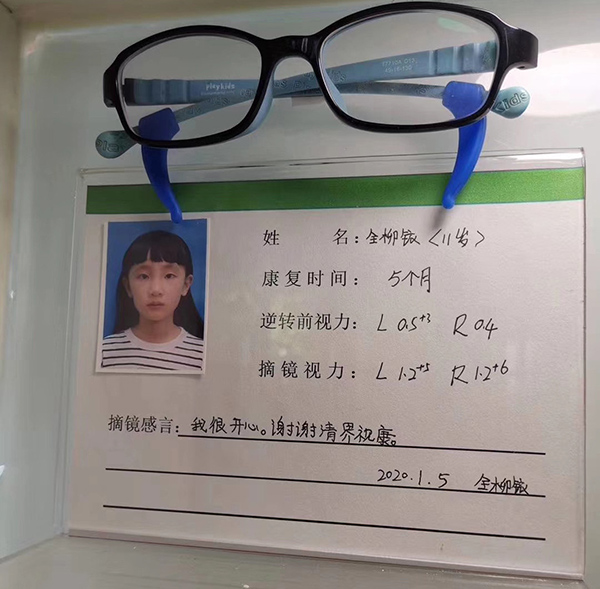 playkids
姓 名：全柳铱〈11岁〉
康复时间： 5个月
逆转前视力： L 0.5⁺³ R 0.4
摘镜视力： L 1.2⁺⁵ R 1.2⁺⁶
摘镜感言： 我很开心。谢谢清界视康。
2020.1.5 全柳铱